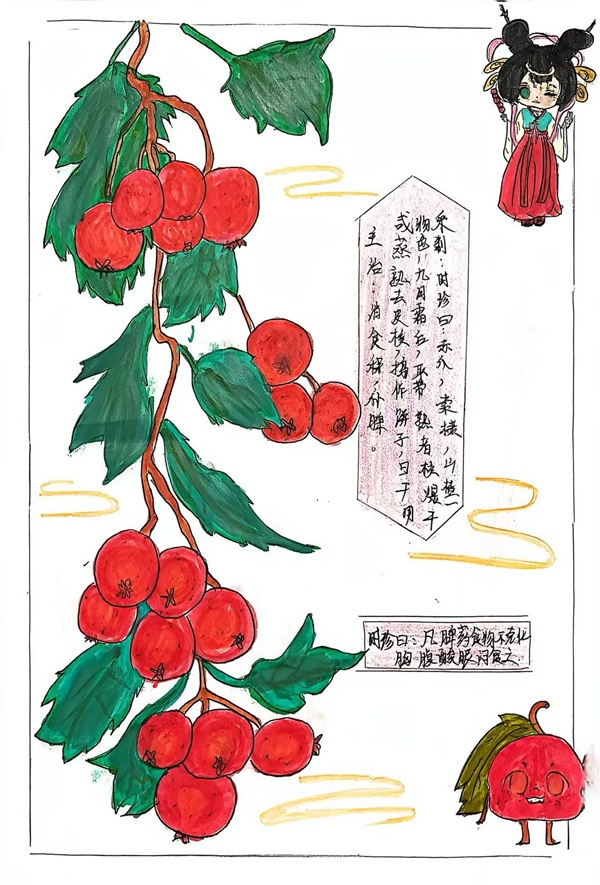 采制：时珍曰：赤爪，棠梂，山樝一
物也，九月霜后，取带熟者核爆干
或蒸熟去皮核，捣作饼子，日干用
主治：消食积，补脾。
时珍曰：凡脾弱食物不克化
胸腹酸胀闷食之